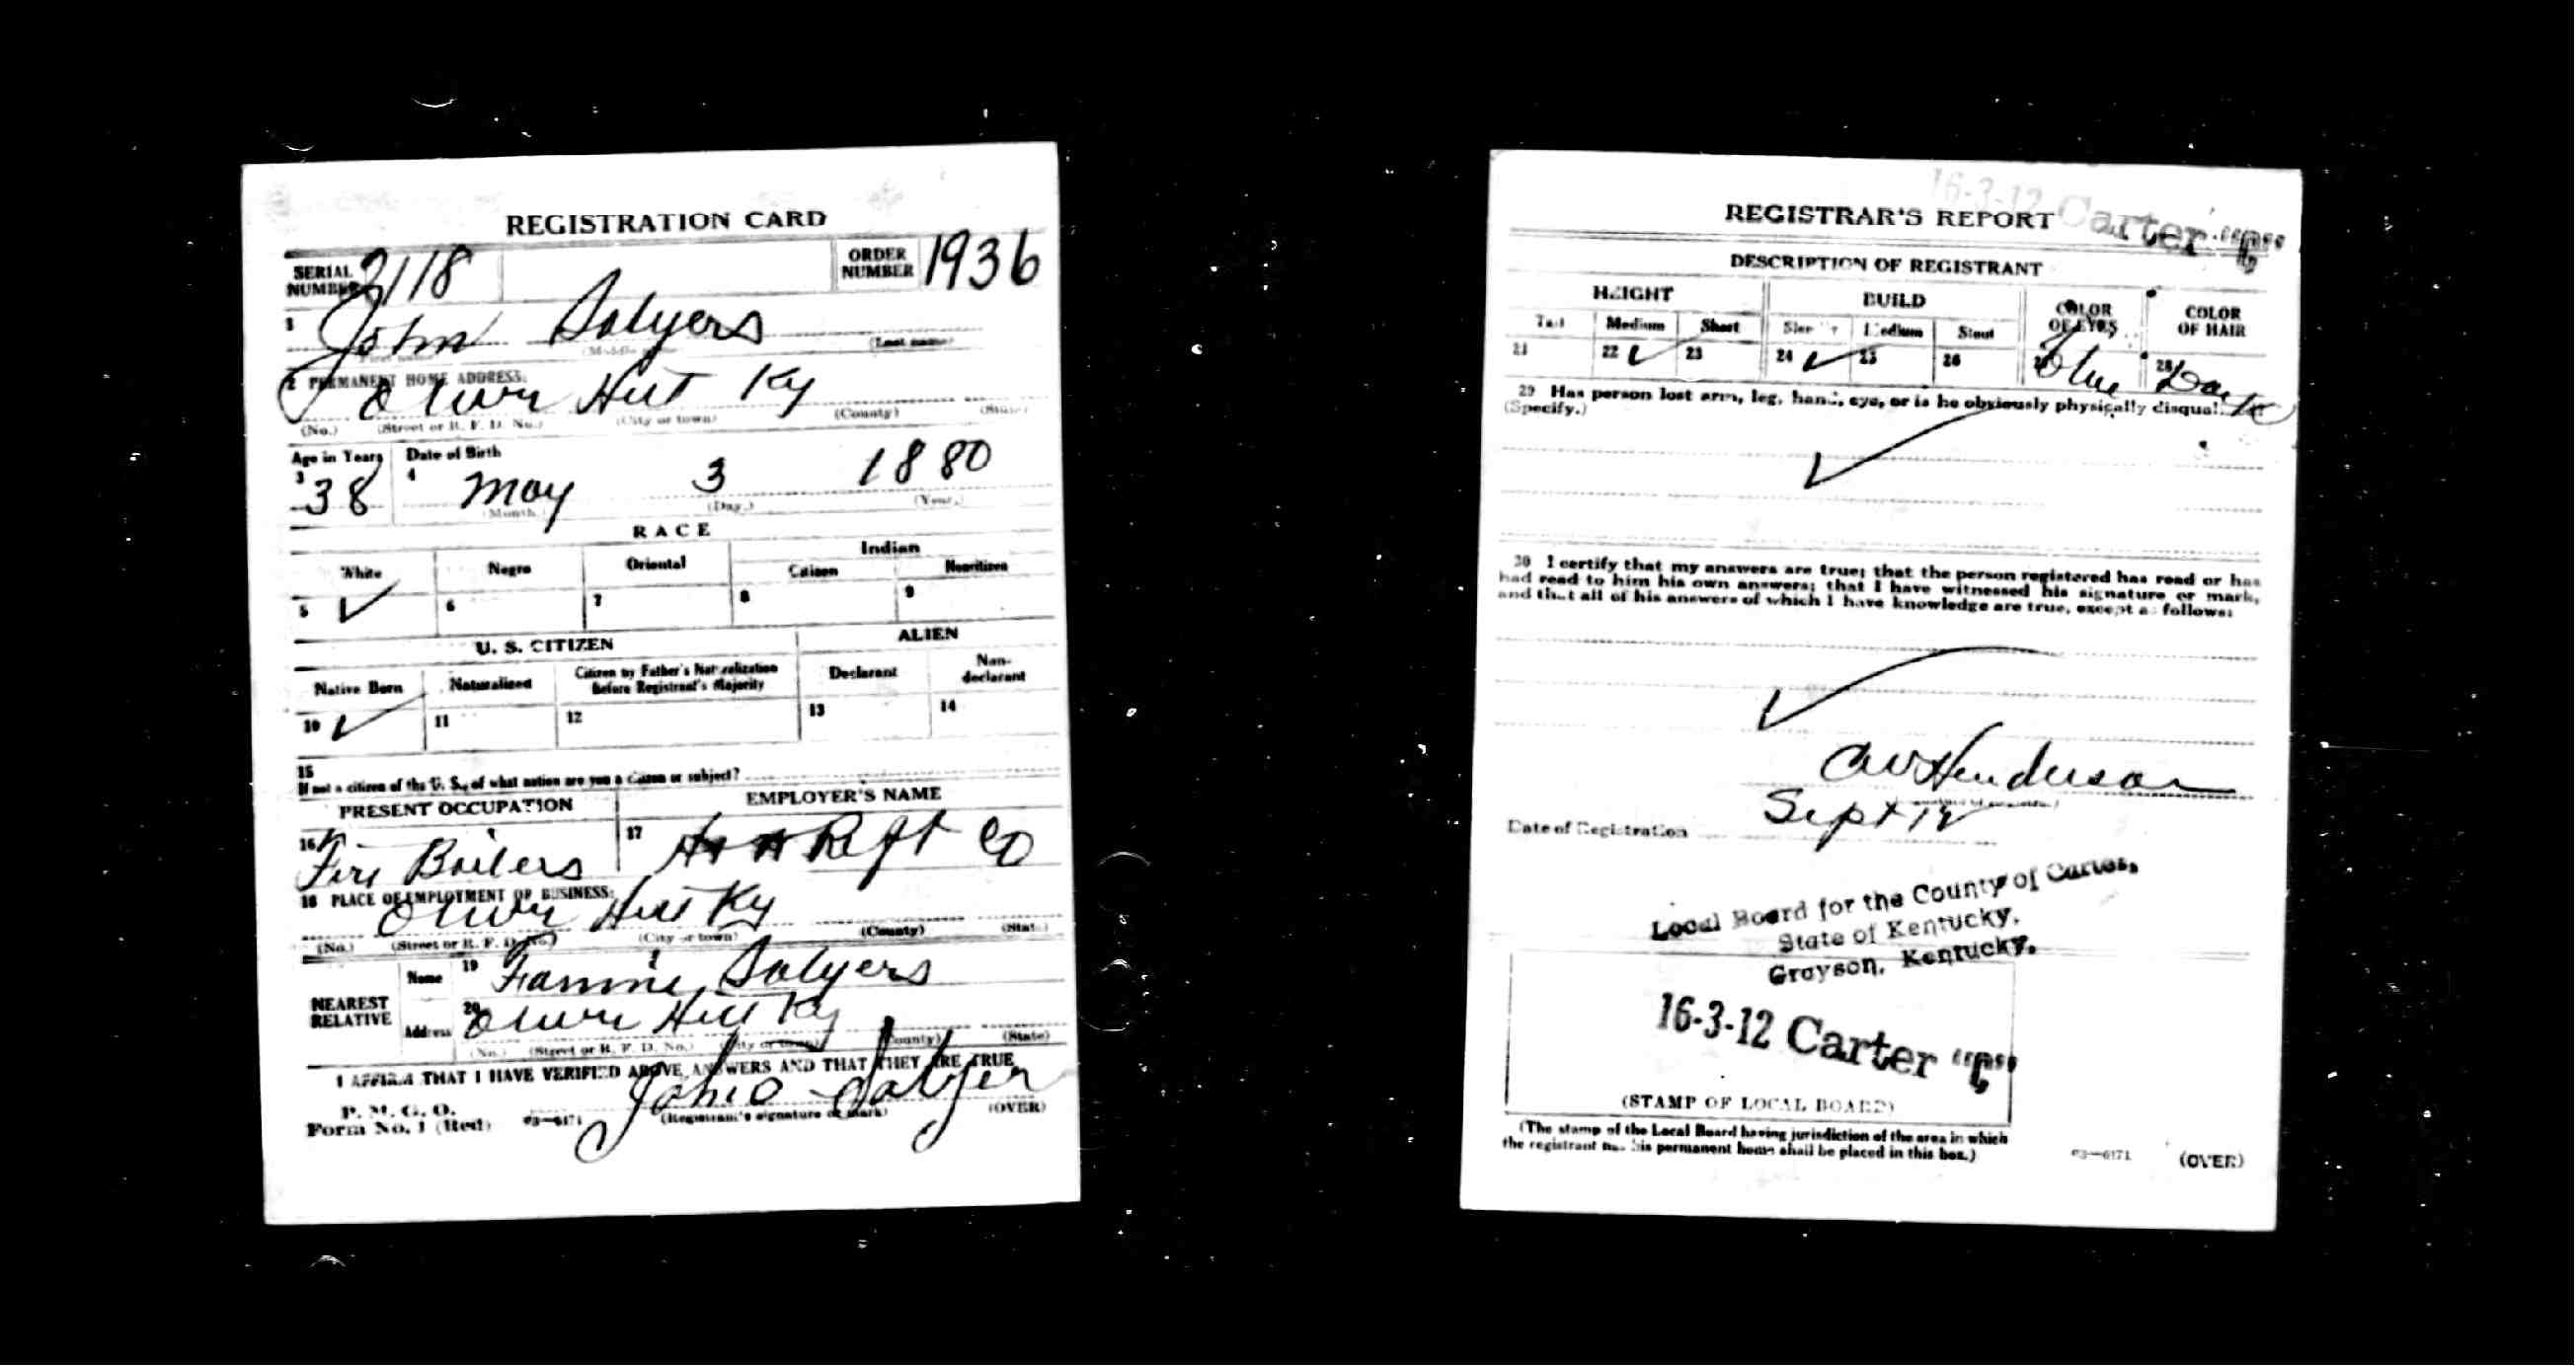 REGISTRATION CARD
SERIAL NUMBER 2118
ORDER NUMBER 1936
1 John Salyers
(First name) (Middle name) (Last name)
2 PERMANENT HOME ADDRESS:
Olive Hill Ky
(No.) (Street or R. F. D. No.) (City or town) (County) (State)
Age in Years Date of Birth
3 38 4 May 3 1880
(Month.) (Day.) (Year.)
RACE
White Negro Oriental Indian
Citizen Noncitizen
5 ✓ 6 7 8 9
U. S. CITIZEN ALIEN
Native Born Naturalized Citizen by Father's Naturalization Before Registrant's Majority Declarant Non-declarant
10 ✓ 11 12 13 14
15
If not a citizen of the U. S., of what nation are you a citizen or subject?
PRESENT OCCUPATION EMPLOYER'S NAME
16 Fire Boilers 17 Reft Co
18 PLACE OF EMPLOYMENT OR BUSINESS:
Olive Hill Ky
(No.) (Street or R. F. D. No.) (City or town) (County) (State)
NEAREST RELATIVE
Name 19 Fannie Salyers
Address 20 Olive Hill Ky
(No.) (Street or R. F. D. No.) (City or town) (County) (State)
I AFFIRM THAT I HAVE VERIFIED ABOVE ANSWERS AND THAT THEY ARE TRUE
P. M. G. O.
Form No. 1 (Red) 03—6171 (Registrant's signature or mark) (OVER)
John Salyer
16-3-12 Carter "C"
REGISTRAR'S REPORT
DESCRIPTION OF REGISTRANT
HEIGHT BUILD COLOR OF EYES COLOR OF HAIR
Tall Medium Short Slender Medium Stout
21 22 ✓ 23 24 ✓ 25 26 27 Blue 28 Dark
29 Has person lost arm, leg, hand, eye, or is he obviously physically disqualified?
(Specify.)
✓
30 I certify that my answers are true; that the person registered has read or has
had read to him his own answers; that I have witnessed his signature or mark,
and that all of his answers of which I have knowledge are true, except as follows:
✓
Henderson
Date of Registration Sept 12
Local Board for the County of Carter,
State of Kentucky,
Grayson, Kentucky.
16-3-12 Carter "C"
(STAMP OF LOCAL BOARD)
(The stamp of the Local Board having jurisdiction of the area in which
the registrant has his permanent home shall be placed in this box.)
03—6171 (OVER)